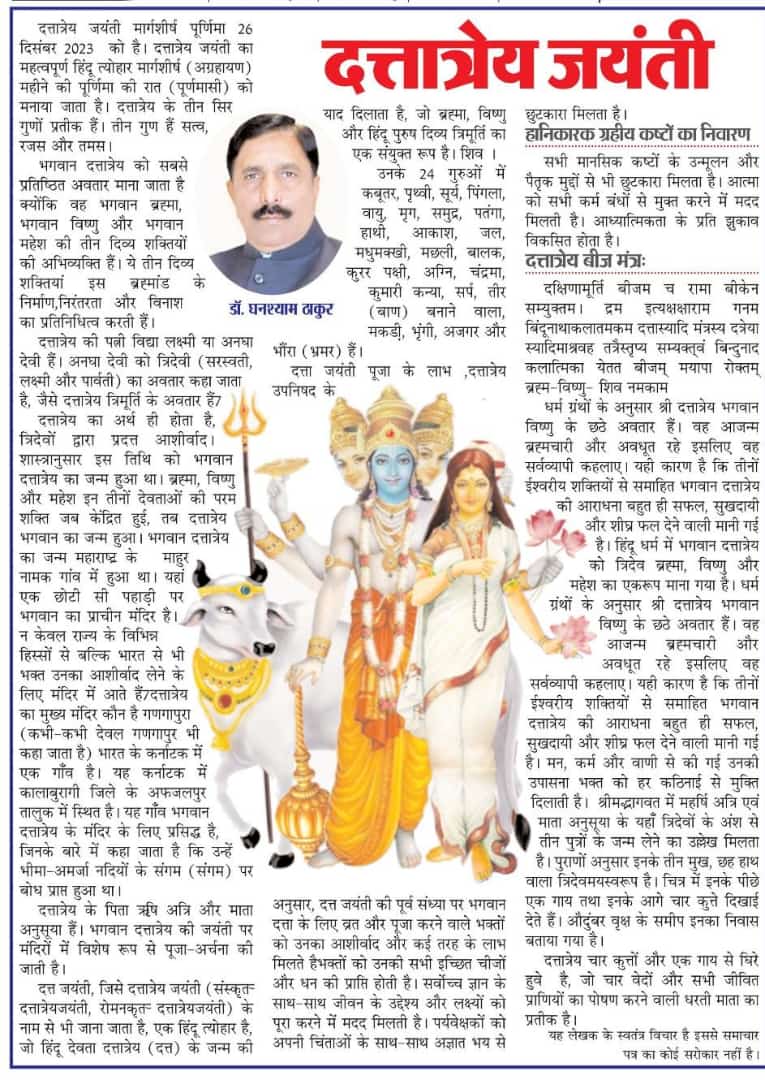 दत्तात्रेय जयंती
दत्तात्रेय जयंती मार्गशीर्ष पूर्णिमा 26
दिसंबर 2023 को है। दत्तात्रेय जयंती का
महत्वपूर्ण हिंदू त्योहार मार्गशीर्ष (अग्रहायण)
महीने की पूर्णिमा की रात (पूर्णमासी) को
मनाया जाता है। दत्तात्रेय के तीन सिर
गुणों प्रतीक हैं। तीन गुण हैं सत्व,
रजस और तमस।
भगवान दत्तात्रेय को सबसे
प्रतिष्ठित अवतार माना जाता है
क्योंकि वह भगवान ब्रह्मा,
भगवान विष्णु और भगवान
महेश की तीन दिव्य शक्तियों
की अभिव्यक्ति हैं। ये तीन दिव्य
शक्तियां इस ब्रह्मांड के
निर्माण,निरंतरता और विनाश
का प्रतिनिधित्व करती हैं।
दत्तात्रेय की पत्नी विद्या लक्ष्मी या अनघा
देवी हैं। अनघा देवी को त्रिदेवी (सरस्वती,
लक्ष्मी और पार्वती) का अवतार कहा जाता
है, जैसे दत्तात्रेय त्रिमूर्ति के अवतार हैं7
दत्तात्रेय का अर्थ ही होता है,
त्रिदेवों द्वारा प्रदत्त आशीर्वाद।
शास्त्रानुसार इस तिथि को भगवान
दत्तात्रेय का जन्म हुआ था। ब्रह्मा, विष्णु
और महेश इन तीनों देवताओं की परम
शक्ति जब केंद्रित हुई, तब दत्तात्रेय
भगवान का जन्म हुआ। भगवान दत्तात्रेय
का जन्म महाराष्ट्र के माहुर
नामक गांव में हुआ था। यहां
एक छोटी सी पहाड़ी पर
भगवान का प्राचीन मंदिर है।
न केवल राज्य के विभिन्न
हिस्सों से बल्कि भारत से भी
भक्त उनका आशीर्वाद लेने के
लिए मंदिर में आते हैं7दत्तात्रेय
का मुख्य मंदिर कौन है गणगापुरा
(कभी-कभी देवल गणगापुर भी
कहा जाता है) भारत के कर्नाटक में
एक गाँव है। यह कर्नाटक में
कालाबुरागी जिले के अफजलपुर
तालुक में स्थित है। यह गाँव भगवान
दत्तात्रेय के मंदिर के लिए प्रसिद्ध है,
जिनके बारे में कहा जाता है कि उन्हें
भीमा-अमर्जा नदियों के संगम (संगम) पर
बोध प्राप्त हुआ था।
दत्तात्रेय के पिता ऋषि अत्रि और माता
अनुसूया हैं। भगवान दत्तात्रेय की जयंती पर
मंदिरों में विशेष रूप से पूजा-अर्चना की
जाती है।
दत्त जयंती, जिसे दत्तात्रेय जयंती (संस्कृतः
दत्तात्रेयजयंती, रोमनकृतः दत्तात्रेयजयंती) के
नाम से भी जाना जाता है, एक हिंदू त्योहार है,
जो हिंदू देवता दत्तात्रेय (दत्त) के जन्म की
डॉ. घनश्याम ठाकुर
याद दिलाता है, जो ब्रह्मा, विष्णु
और हिंदू पुरुष दिव्य त्रिमूर्ति का
एक संयुक्त रूप है। शिव ।
उनके 24 गुरुओं में
कबूतर, पृथ्वी, सूर्य, पिंगला,
वायु, मृग, समुद्र, पतंगा,
हाथी, आकाश, जल,
मधुमक्खी, मछली, बालक,
कुरर पक्षी, अग्नि, चंद्रमा,
कुमारी कन्या, सर्प, तीर
(बाण) बनाने वाला,
मकडी, भृंगी, अजगर और
भौंरा (भ्रमर) हैं।
दत्ता जयंती पूजा के लाभ ,दत्तात्रेय
उपनिषद के
अनुसार, दत्त जयंती की पूर्व संध्या पर भगवान
दत्ता के लिए व्रत और पूजा करने वाले भक्तों
को उनका आशीर्वाद और कई तरह के लाभ
मिलते हैभक्तों को उनकी सभी इच्छित चीजों
और धन की प्राप्ति होती है। सर्वोच्च ज्ञान के
साथ-साथ जीवन के उद्देश्य और लक्ष्यों को
पूरा करने में मदद मिलती है। पर्यवेक्षकों को
अपनी चिंताओं के साथ-साथ अज्ञात भय से
छुटकारा मिलता है।
हानिकारक ग्रहीय कष्टों का निवारण
सभी मानसिक कष्टों के उन्मूलन और
पैतृक मुद्दों से भी छुटकारा मिलता है। आत्मा
को सभी कर्म बंधों से मुक्त करने में मदद
मिलती है। आध्यात्मिकता के प्रति झुकाव
विकसित होता है।
दत्तात्रेय बीज मंत्रः
दक्षिणामूर्ति बीजम च रामा बीकेन
सम्युक्तम। द्रम इत्यक्षक्षाराम गनम
बिंदूनाथाकलातमकम दत्तास्यादि मंत्रस्य दत्रेया
स्यादिमाश्रवह तत्रैस्तृप्य सम्यक्त्वं बिन्दुनाद
कलात्मिका येतत बीजम् मयापा रोक्तम्
ब्रह्म-विष्णु- शिव नमकाम
धर्म ग्रंथों के अनुसार श्री दत्तात्रेय भगवान
विष्णु के छठे अवतार हैं। वह आजन्म
ब्रह्मचारी और अवधूत रहे इसलिए वह
सर्वव्यापी कहलाए। यही कारण है कि तीनों
ईश्वरीय शक्तियों से समाहित भगवान दत्तात्रेय
की आराधना बहुत ही सफल, सुखदायी
और शीघ्र फल देने वाली मानी गई
है। हिंदू धर्म में भगवान दत्तात्रेय
को त्रिदेव ब्रह्मा, विष्णु और
महेश का एकरूप माना गया है। धर्म
ग्रंथों के अनुसार श्री दत्तात्रेय भगवान
विष्णु के छठे अवतार हैं। वह
आजन्म ब्रह्मचारी और
अवधूत रहे इसलिए वह
सर्वव्यापी कहलाए। यही कारण है कि तीनों
ईश्वरीय शक्तियों से समाहित भगवान
दत्तात्रेय की आराधना बहुत ही सफल,
सुखदायी और शीघ्र फल देने वाली मानी गई
है। मन, कर्म और वाणी से की गई उनकी
उपासना भक्त को हर कठिनाई से मुक्ति
दिलाती है। श्रीमद्भागवत में महर्षि अत्रि एवं
माता अनुसूया के यहाँ त्रिदेवों के अंश से
तीन पुत्रों के जन्म लेने का उल्लेख मिलता
है। पुराणों अनुसार इनके तीन मुख, छह हाथ
वाला त्रिदेवमयस्वरूप है। चित्र में इनके पीछे
एक गाय तथा इनके आगे चार कुत्ते दिखाई
देते हैं। औदुंबर वृक्ष के समीप इनका निवास
बताया गया है।
दत्तात्रेय चार कुत्तों और एक गाय से घिरे
हुवे है, जो चार वेदों और सभी जीवित
प्राणियों का पोषण करने वाली धरती माता का
प्रतीक है।
यह लेखक के स्वतंत्र विचार है इससे समाचार
पत्र का कोई सरोकार नहीं है।